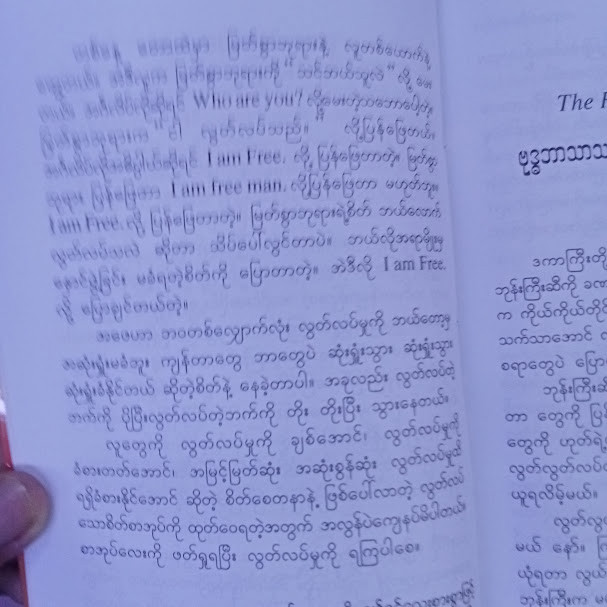 မြတ်စွာဘုရားနဲ့ လူတစ်ယောက်နဲ့
မြတ်စွာဘုရားကို "သင်ဘယ်သူလဲ" လို့ မေး
Who are you? လို့မေးတဲ့သဘောပေါ့တဲ့။
"ငါ လွတ်လပ်သည်။ လို့ပြန်ဖြေတယ်။
I am Free. လို့ ပြန်ဖြေတာတဲ့။ မြတ်စွာ
ဘုရား ပြန်ဖြေတာ I am free man. လို့ပြန်ဖြေတာ မဟုတ်ဘူး။
I am Free. လို့ ပြန်ဖြေတာတဲ့။ မြတ်စွာဘုရားရဲ့စိတ် ဘယ်လောက်
လွတ်လပ်သလဲ ဆိုတာ သိပ်ပေါ်လွင်တာပဲ။ ဘယ်လိုအရာမျိုးမှ
နှောင်ဖွဲ့ခြင်း မခံရတဲ့စိတ်ကို ပြောတာတဲ့။ အဲဒီလို I am Free.
လို့ ပြောချင်တယ်တဲ့။
အဓေဟာ ဘဝတစ်လျှောက်လုံး လွတ်လပ်မှုကို ဘယ်တော့မှ
အဆုံးရှုံးမခံဘူး။ ကျန်တာတွေ ဘာတွေပဲ ဆုံးရှုံးသွား ဆုံးရှုံးသွား
ဆုံးရှုံးခံနိုင်တယ် ဆိုတဲ့စိတ်နဲ့ နေခဲ့တာပါ။ အခုလည်း လွတ်လပ်တဲ့
ဘက်ကို ပိုပြီးလွတ်လပ်တဲ့ဘက်ကို တိုး တိုးပြီး သွားနေတယ်။
လူတွေကို လွတ်လပ်မှုကို ချစ်အောင်၊ လွတ်လပ်မှုကို
ခံစားတတ်အောင်၊ အမြင့်မြတ်ဆုံး အဆုံးစွန်ဆုံး လွတ်လပ်မှုထိ
ရရှိခံစားနိုင်အောင် ဆိုတဲ့ စိတ်စေတနာနဲ့ ဖြစ်ပေါ်လာတဲ့ လွတ်လပ်
သောစိတ်စာအုပ်ကို ထုတ်ဝေရတဲ့အတွက် အလွန်ပဲကျေနပ်မိပါတယ်။
စာအုပ်လေးကို ဖတ်ရှုရပြီး လွတ်လပ်မှုကို ရကြပါစေ။
The
ဗုဒ္ဓဘာသာသ
ဒကာကြီးတို့
ဘုန်းကြီးဆီကို ခဏ
က ကိုယ်ကိုယ်တိုင်
သက်သာအောင်
စရာတွေပဲ ပြော
ဘုန်းကြီးဆီ
တာ တွေကို ပြန်
တွေကို ဟုတ်ရဲ့
လွတ်လွတ်လပ်လပ်
ယူရလိမ့်မယ်။
လွတ်လွတ်
မယ် နော်။
ယုံရတာ လွယ်
ဘုန်းကြီးက